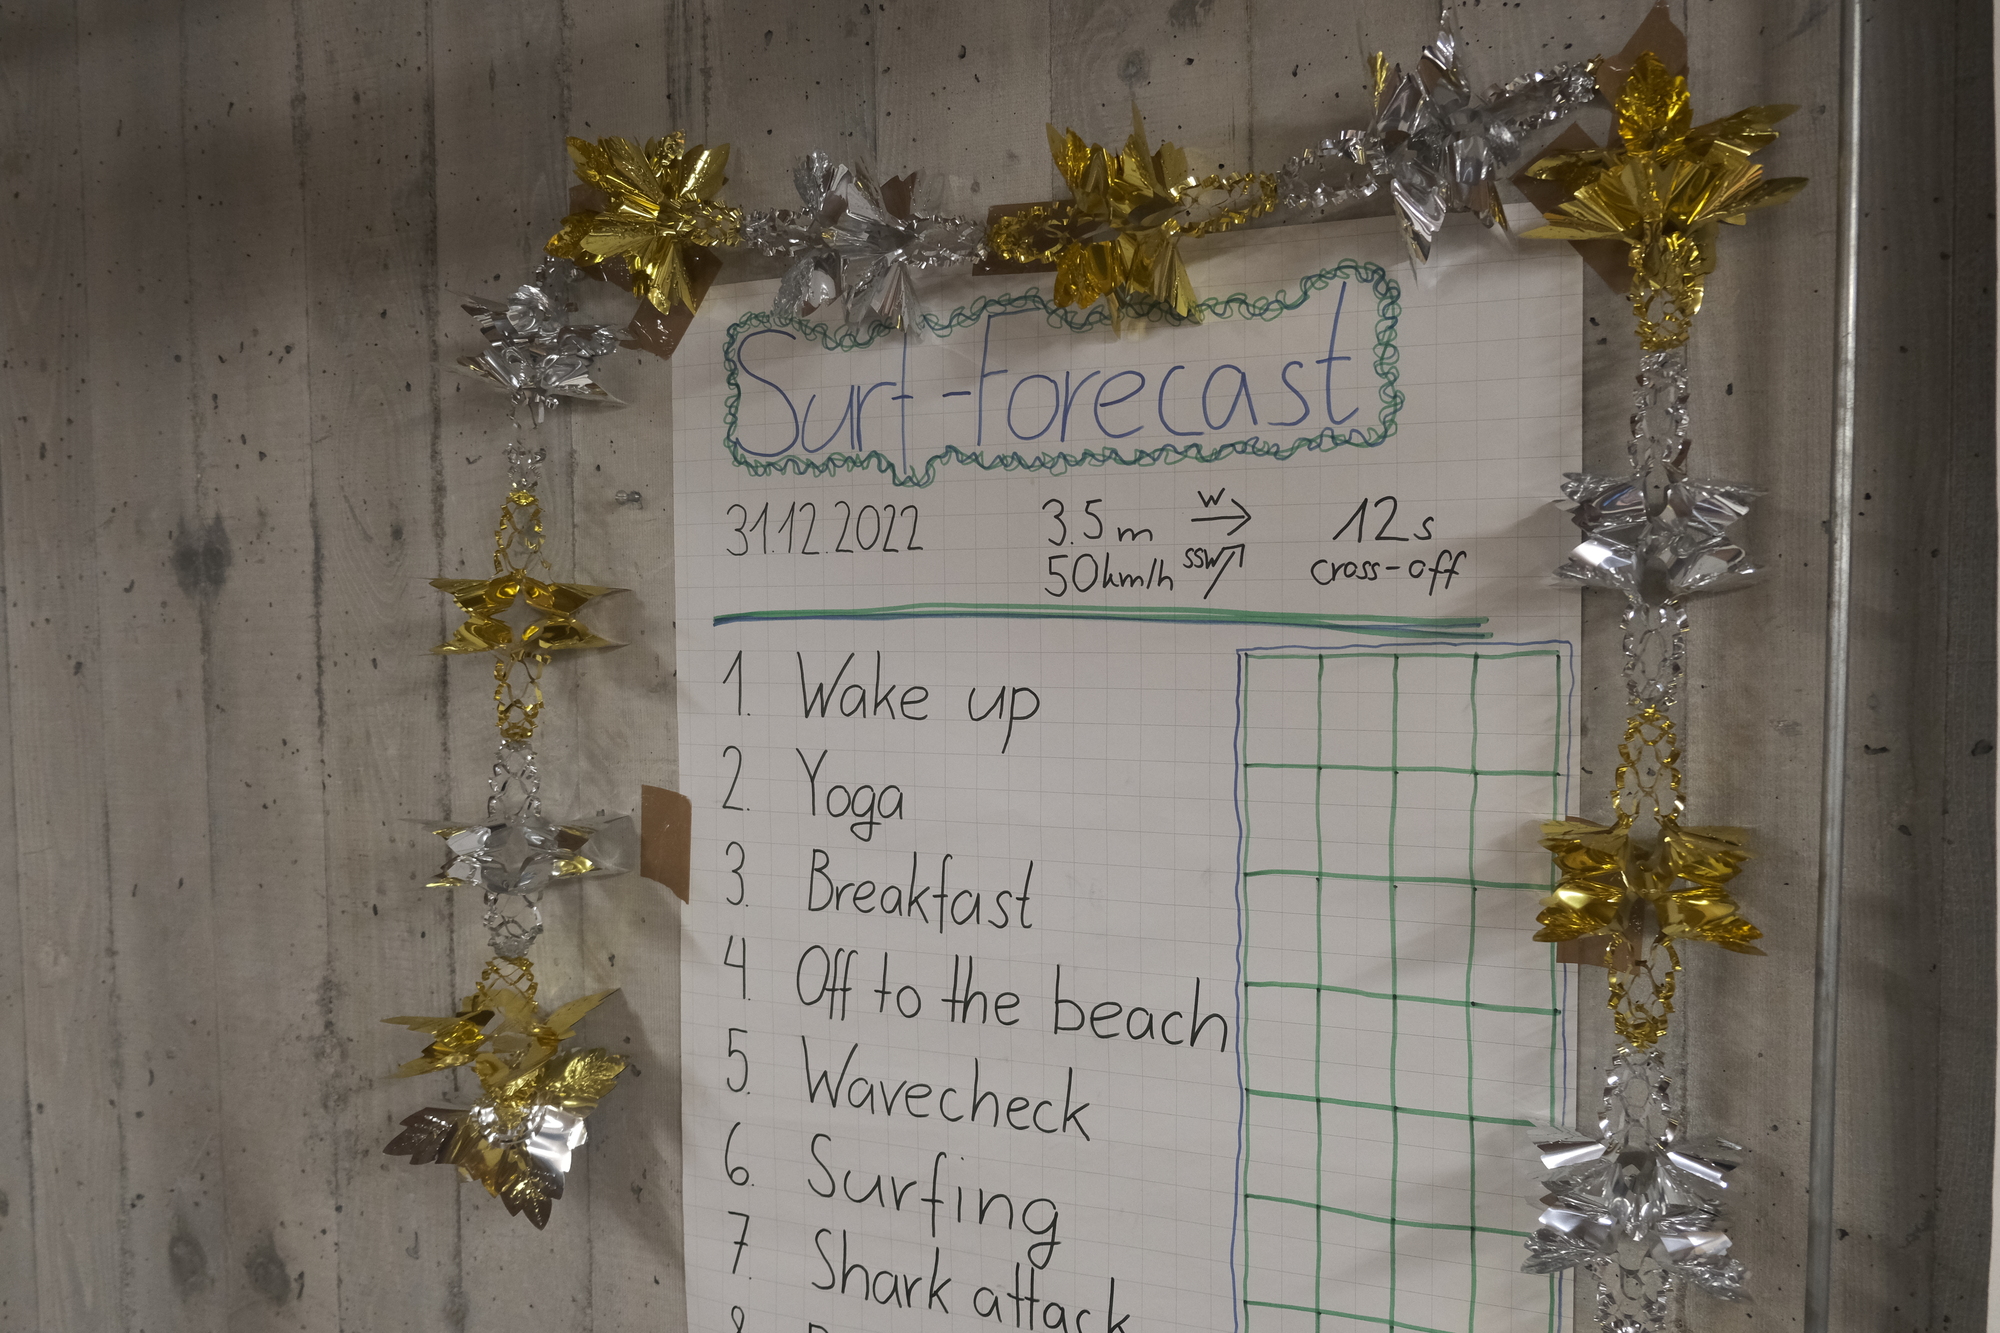 Surf-Forecast
31.12.2022 3.5m W → 12s
50km/h SSW ↗ cross-off
1. Wake up
2. Yoga
3. Breakfast
4. Off to the beach
5. Wavecheck
6. Surfing
7. Shark attack
8.